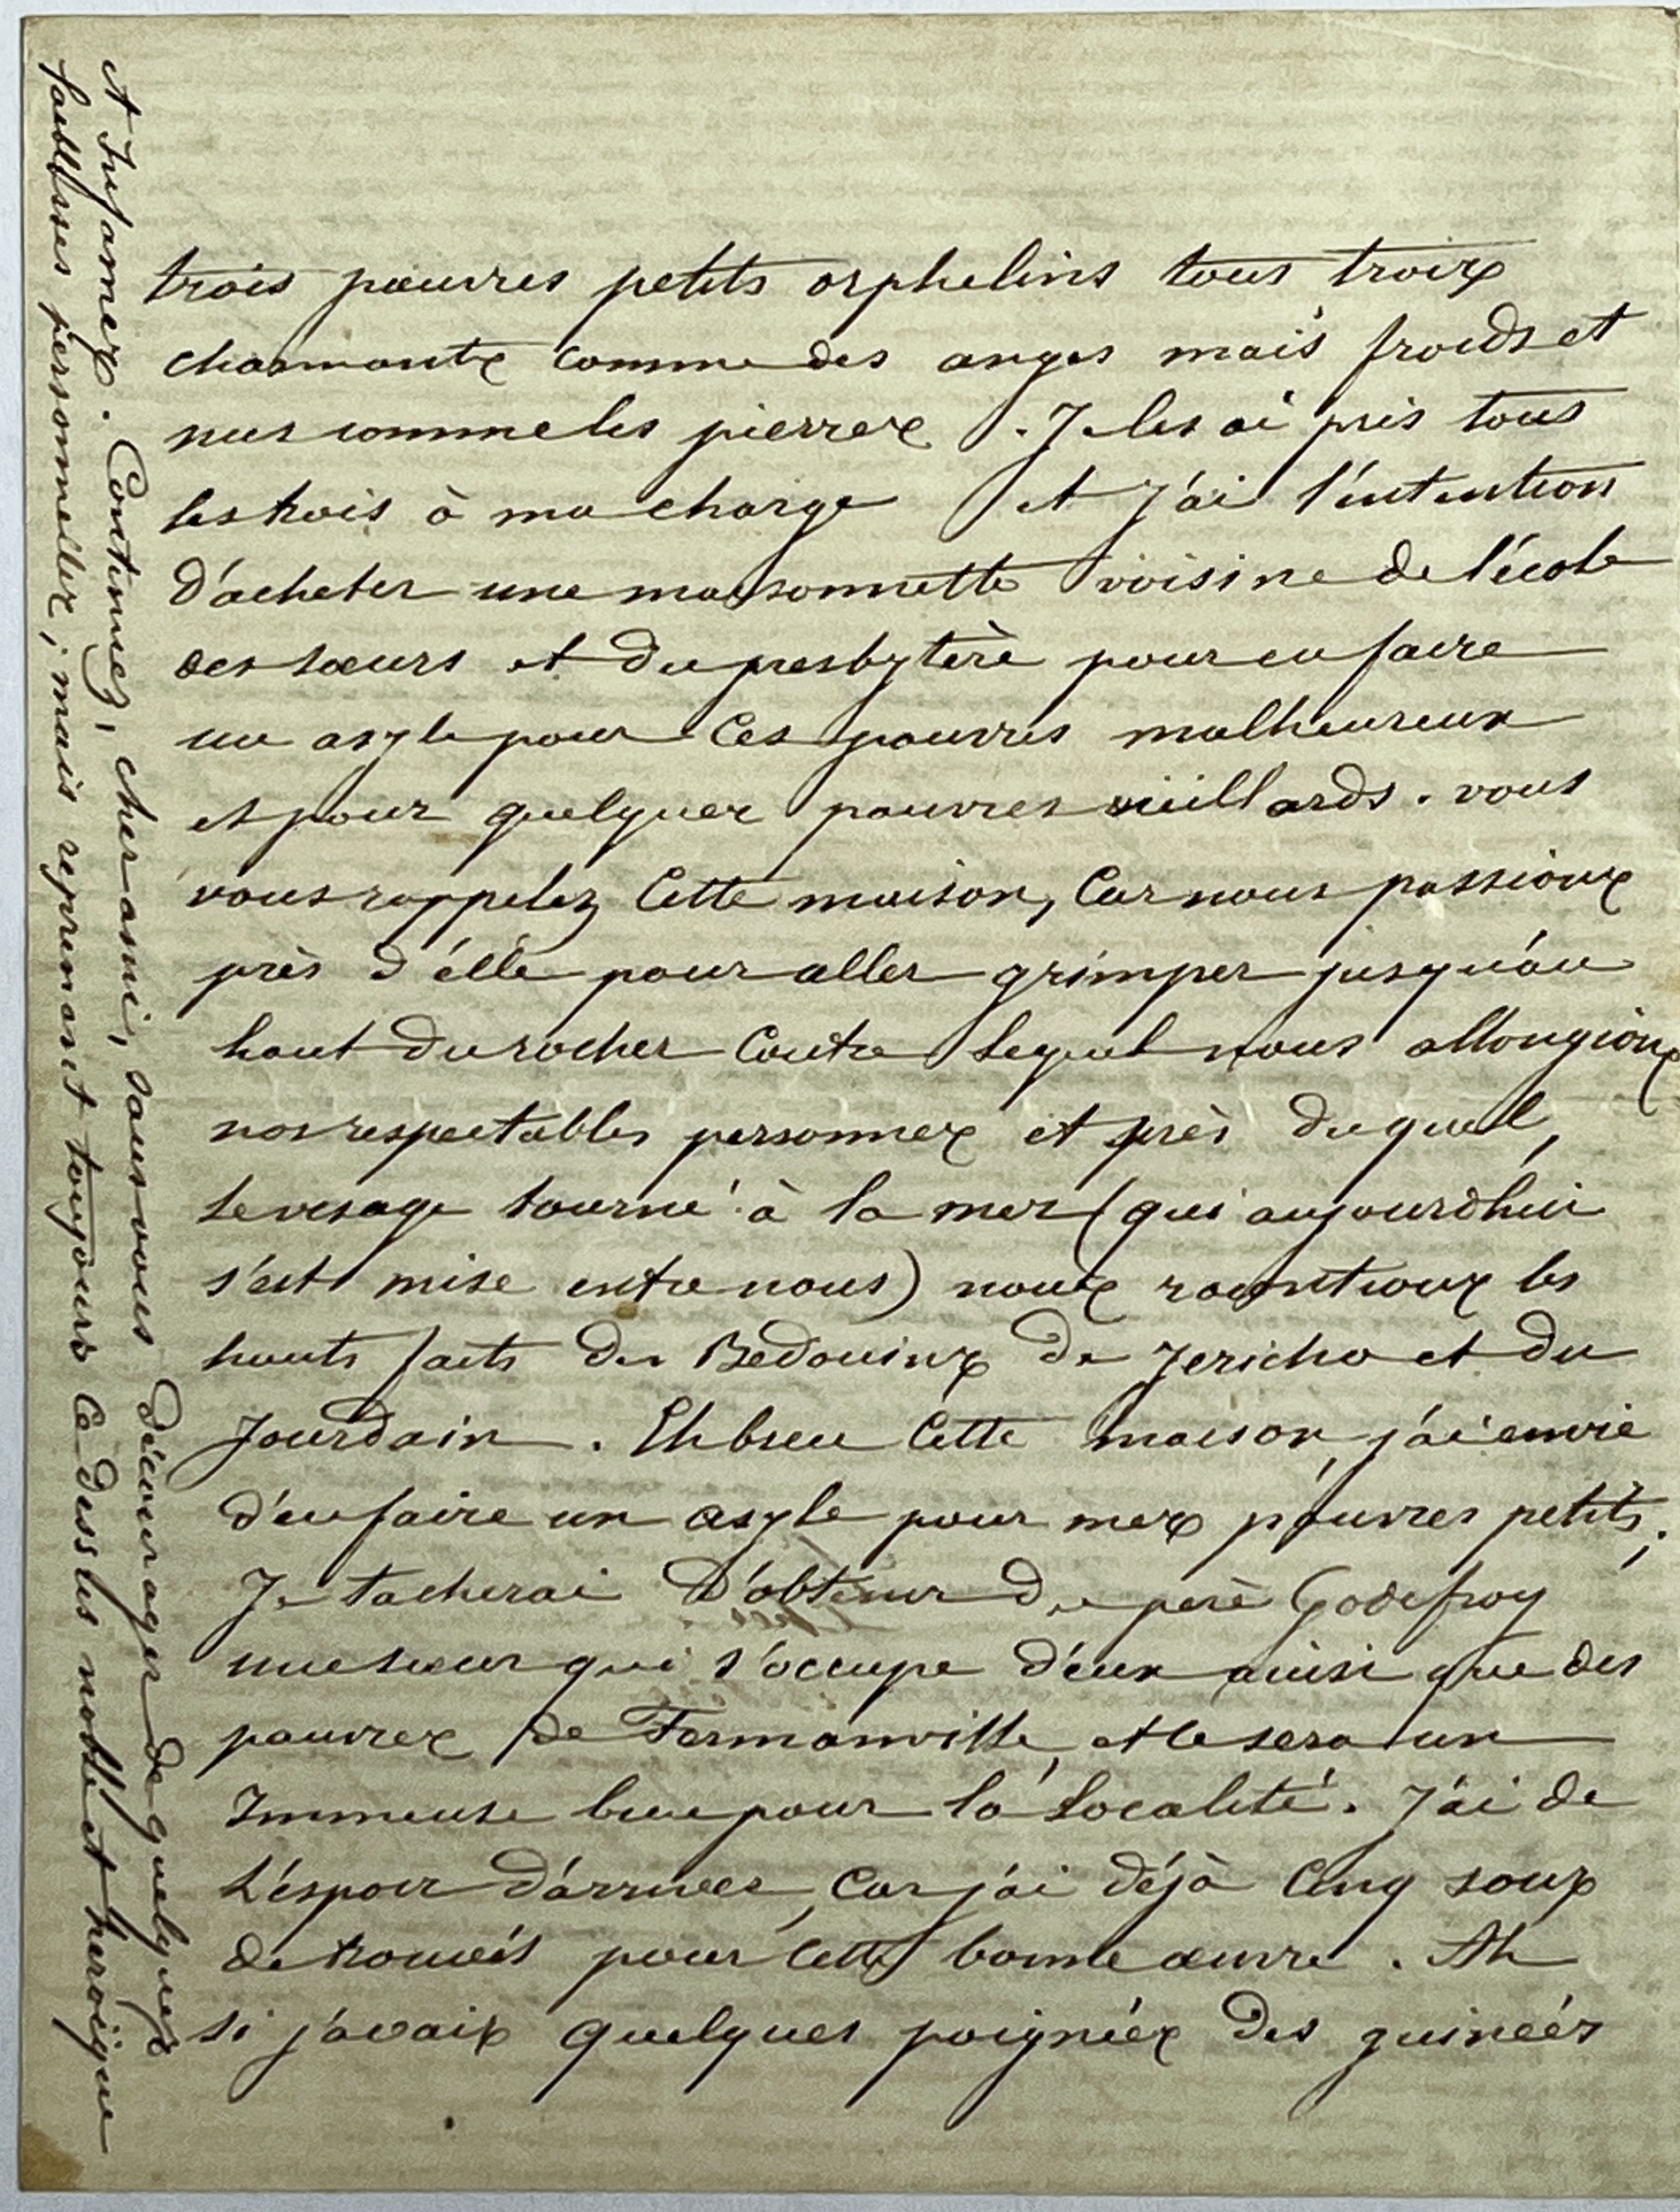 trois pauvres petits orphelins tous trois
charmants comme des anges mais froids et
nus comme les pierres. Je les ai pris tous
les trois à ma charge et j'ai l'intention
d'acheter une maisonnette voisine de l'école
des sœurs et du presbytère pour en faire
un asyle pour ces pauvres malheureux
et pour quelques pauvres vieillards. vous
vous rappelez cette maison, car nous passions
près d'elle pour aller grimper jusqu'au
haut du rocher contre lequel nous allongions
nos respectables personnes et près duquel,
le visage tourné à la mer (qui aujourdhui
s'est mise entre nous) nous racontions les
hauts faits des Bedouins de Jericho et du
Jourdain. Eh bien cette maison, j'ai envie
d'en faire un asyle pour mes pauvres petits;
Je tacherai d'obtenir du père Godefroy
une sœur qui s'occupe d'eux ainsi que des
pauvres de Fermanville, et ce sera un
Immense bien pour la localité. J'ai de
l'espoir d'arriver, car j'ai déjà cinq sous
de trouvés pour cette bonne œuvre. Ah
si j'avais quelques poignées des guinées
et Infames. Continuez, cher ami, sans vous décourager de quelques
faiblesses personnelles, mais reprenant toujours ce dessus noble et heroïque